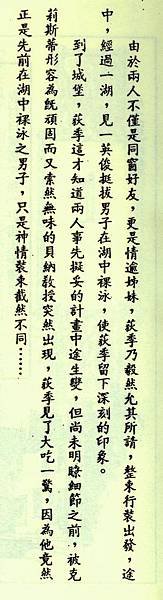 由於兩人不僅是同窗好友，更是情逾姊妹，荻季乃毅然允其所請，整束行裝出發，途
中，經過一湖，見一英俊挺拔男子在湖中裸泳，使荻季留下深刻的印象。
到了城堡，荻季這才知道兩人事先擬妥的計畫中途生變，但尚未明瞭細節之前，被克
莉斯蒂形容為既頑固而又索然無味的貝納教授突然出現，荻季見了大吃一驚，因為他竟然
正是先前在湖中裸泳之男子，只是神情裝束截然不同……